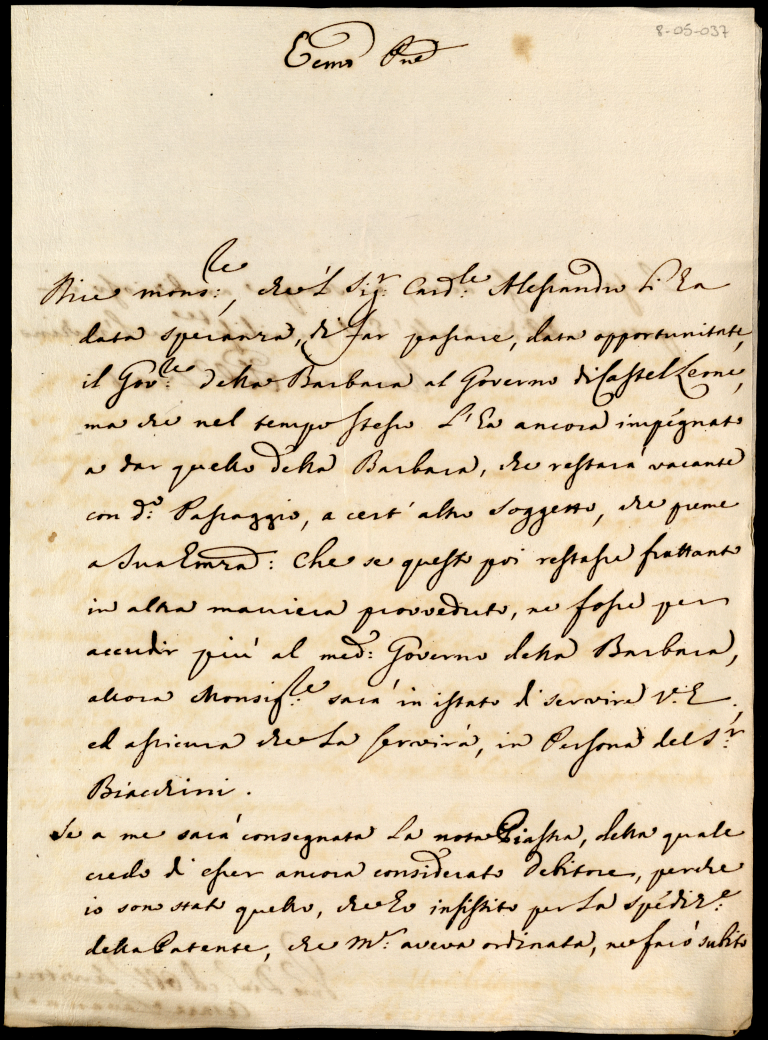 8-05-037
Ecmo Pne
Dice mons:re, che'l Sig:r Card:le Alessandro Li ha
data speranza, di far passare, data opportunitate,
il Gov:re della Barbara al Governo di Castel Leone,
ma che nel tempo stesso l'ha ancora impegnato
a dar quello della Barbara, che restarà vacante
con d:o Passaggio, a cert'altro soggetto, che preme
a Sua Emza: Che se questo poi restasse frattanto
in altra maniera proveduto, ne fosse per
accudir più al med: Governo della Barbara,
allora Monsig:re sarà in istato di servire V. E.,
ed assicura che La servirà, in Persona del S:r
Biacchini.
Se a me sarà consegnata La nota Piastra, della quale
credo di esser ancora considerato debitore, perche
io sono stato quello, che ho insistito per La spediz:e
della Patente, che M:r aveva ordinata, ne farò subito